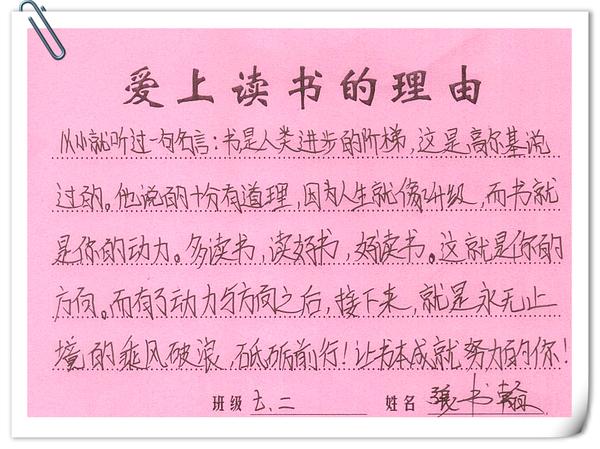 爱上读书的理由
从小就听过一句名言：书是人类进步的阶梯，这是高尔基说
过的。他说的十分有道理，因为人生就像升级，而书就
是你的动力。多读书，读好书，好读书。这就是你的
方向。而有了动力与方向之后，接下来，就是永无止
境的乘风破浪，砥砺前行！让书本成就努力的你！
班级 七、二 姓名 张书翰